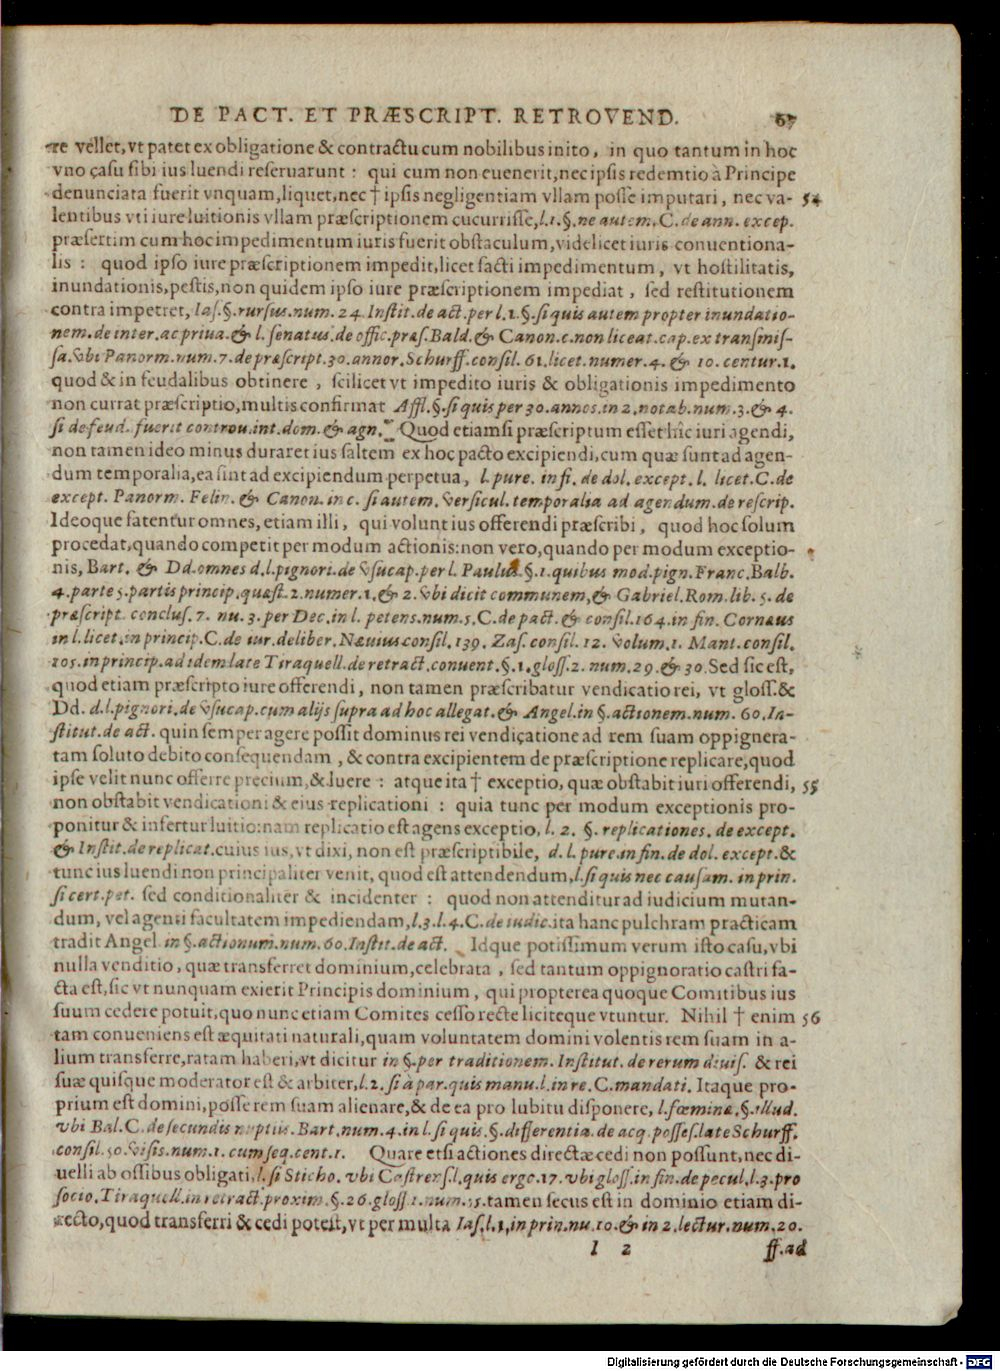 DE PACT. ET PRÆSCRIPT. RETROVEND. 67
re vellet, vt patet ex obligatione & contractu cum nobilibus inito, in quo tantum in hoc
vno casu sibi ius luendi reseruarunt: qui cum non euenerit, nec ipsis redemtio à Principe
denunciata fuerit vnquam, liquet, nec † ipsis negligentiam vllam posse imputari, nec va- 54
lentibus vti iure luitionis vllam præscriptionem cucurrisse, l. 1. §. ne autem. C. de ann. excep.
præsertim cum hoc impedimentum iuris fuerit obstaculum, videlicet iuris conuentiona-
lis: quod ipso iure præscriptionem impedit, licet facti impedimentum, vt hostilitatis,
inundationis, pestis, non quidem ipso iure præscriptionem impediat, sed restitutionem
contra impetret, Ias. §. rursus. num. 24. Instit. de act. per l. 1. §. si quis autem propter inundatio-
nem. de itiner. ac priua. & l. senatus. de offic. præs. Bald. & Canon. c. non liceat. cap. ex transmis-
sa. vbi Panorm. num. 7. de præscript. 30. annor. Schurff. consil. 61. licet. numer. 4. & 10. centur. 1.
quod & in feudalibus obtinere, scilicet vt impedito iuris & obligationis impedimento
non currat præscriptio, multis confirmat Affl. §. si quis per 30. annos. in 2. notab. num. 3. & 4.
si de feud. fuerit controu. int. dom. & agn. Quod etiamsi præscriptum esset hîc iuri agendi,
non tamen ideo minus duraret ius saltem ex hoc pacto excipiendi, cum quæ sunt ad agen-
dum temporalia, ea sint ad excipiendum perpetua, l. pure. in fi. de dol. except. l. licet. C. de
except. Panorm. Felin. & Canon. in c. si autem. versicul. temporalia ad agendum. de rescrip.
Ideoque fatentur omnes, etiam illi, qui volunt ius offerendi præscribi, quod hoc solum
procedat, quando competit per modum actionis: non vero, quando per modum exceptio-
nis, Bart. & Dd. omnes d. l. pignori. de vsucap. per l. Paulus. §. 1. quibus mod. pign. Franc. Balb.
4. parte 5. partis princip. quæst. 2. numer. 1. & 2. vbi dicit communem, & Gabriel. Rom. lib. 5. de
præscript. conclus. 7. nu. 3. per Dec. in l. petens. num. 5. C. de pact. & consil. 164. in fin. Cornæus
in l. licet. in princip. C. de iur. deliber. Næuius consil. 139. Zas. consil. 12. volum. 1. Mant. consil.
105. in princip. ad idem late Tiraquell. de retract. conuent. §. 1. gloss. 2. num. 29. & 30. Sed sic est,
quod etiam præscripto iure offerendi, non tamen præscribatur vendicatio rei, vt gloss. &
Dd. d. l. pignori. de vsucap. cum alijs supra ad hoc allegat. & Angel. in §. actionem. num. 60. In-
stitut. de act. quin semper agere possit dominus rei vendicatione ad rem suam oppignera-
tam soluto debito consequendam, & contra excipientem de præscriptione replicare, quod
ipse velit nunc offerre precium, & luere: atque ita † exceptio, quæ obstabit iuri offerendi, 55
non obstabit vendicationi & eius replicationi: quia tunc per modum exceptionis pro-
ponitur & infertur luitio: nam replicatio est agens exceptio, l. 2. §. replicationes. de except.
& Instit. de replicat. cuius ius, vt dixi, non est præscriptibile, d. l. pure. in fin. de dol. except. &
tunc ius luendi non principaliter venit, quod est attendendum, l. si quis nec causam. in prin.
si cert. pet. sed conditionaliter & incidenter: quod non attenditur ad iudicium mutan-
dum, vel agenti facultatem impediendam, l. 3. l. 4. C. de iudic. ita hanc pulchram practicam
tradit Angel. in §. actionum. num. 60. Instit. de act. Idque potissimum verum isto casu, vbi
nulla venditio, quæ transferret dominium, celebrata, sed tantum oppignoratio castri fa-
cta est, sic vt nunquam exierit Principis dominium, qui propterea quoque Comitibus ius
suum cedere potuit, quo nunc etiam Comites cesso recte liciteque vtuntur. Nihil † enim 56
tam conueniens est æquitati naturali, quam voluntatem domini volentis rem suam in a-
lium transferre, ratam haberi, vt dicitur in §. per traditionem. Institut. de rerum diuis. & rei
suæ quisque moderator est & arbiter, l. 2. si à par. quis manu. l. in re. C. mandati. Itaque pro-
prium est domini, posse rem suam alienare, & de ea pro lubitu disponere, l. fœminæ. §. illud.
vbi Bal. C. de secundis nuptiis. Bart. num. 4. in l. si quis. §. differentia. de acq. posses. late Schurff.
consil. 50. visis. num. 1. cum seq. cent. 1. Quare etsi actiones directæ cedi non possunt, nec di-
uelli ab ossibus obligati, l. si Sticho. vbi Castrens. l. quis ergo. 17. vbi gloss. in fin. de pecul. l. 3. pro
socio. Tiraquell. in retract. proxim. §. 26. gloss. 1. num. 35. tamen secus est in dominio etiam di-
recto, quod transferri & cedi potest, vt per multa Ias. l. 1. in prin. nu. 10. & in 2. lectur. num. 20.
l 2 ff. ad
Digitalisierung gefördert durch die Deutsche Forschungsgemeinschaft - DFG